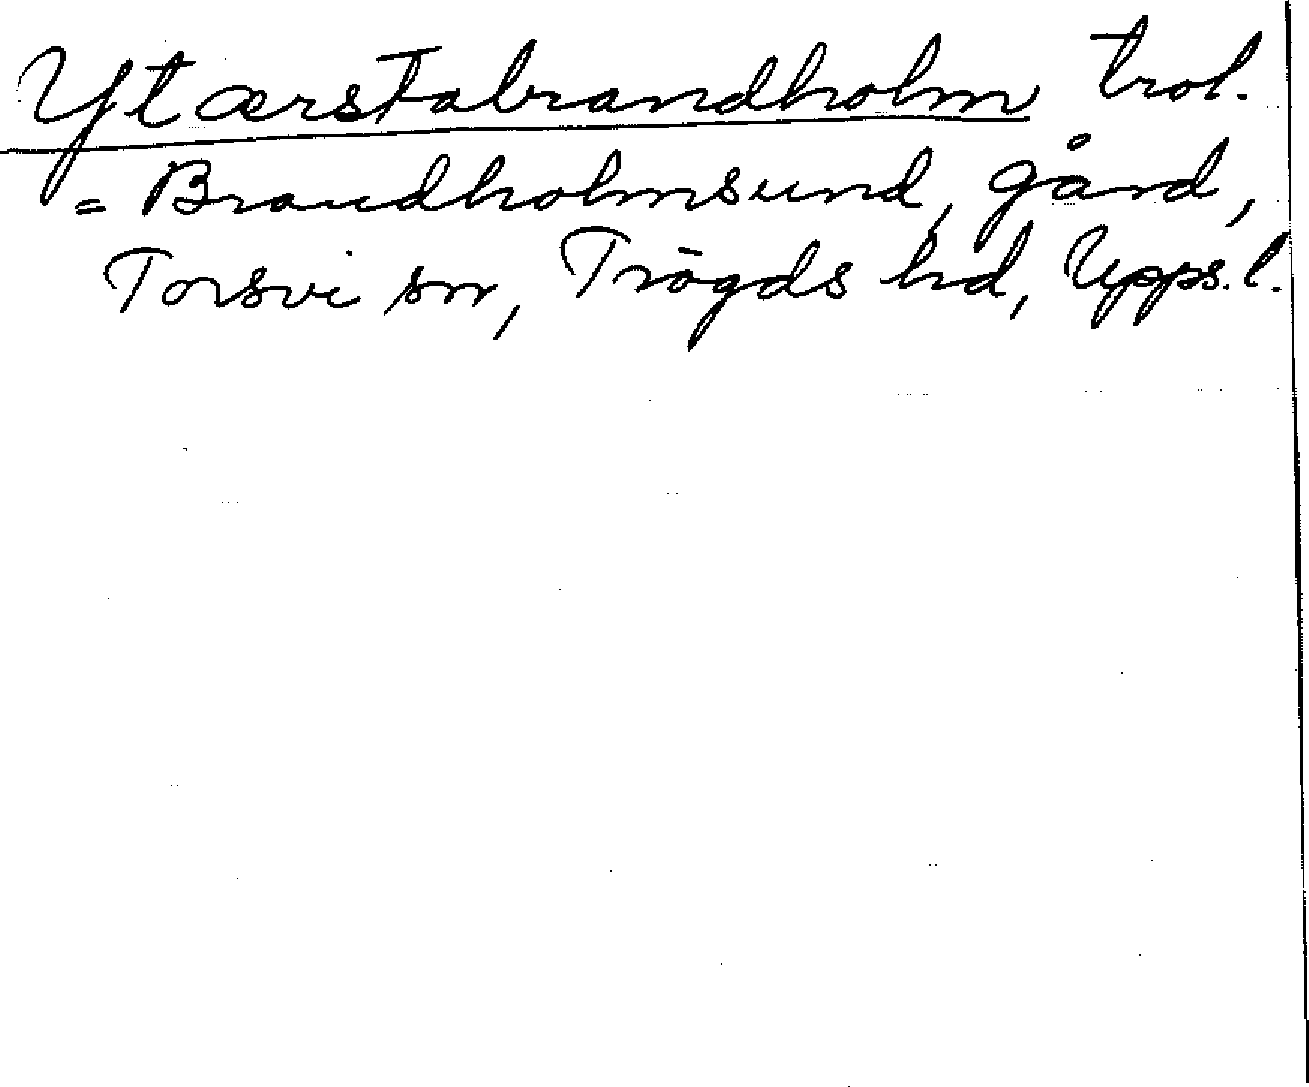 Ytærstabrandholm trol.
= Brandholmsund, gård,
Torsvi sn, Trögds hd, Upps. l.